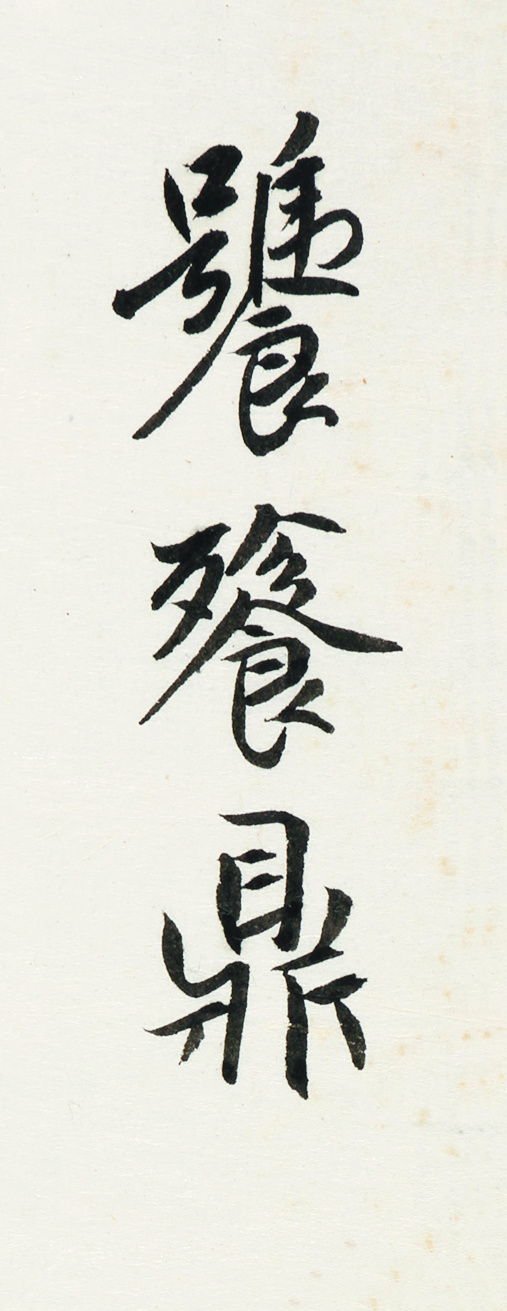 饕餮鼎